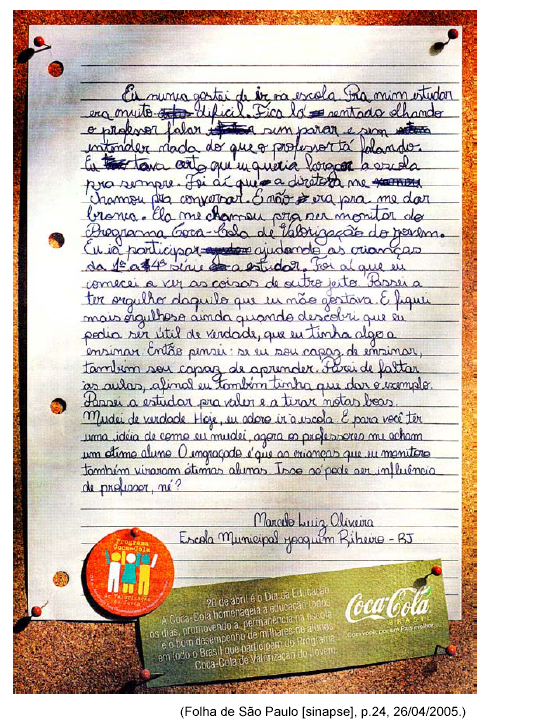 Eu nunca gostei de ir na escola. Pra mim estudar
era muito difícil. Fica lá sentado olhando
o professor falar sem parar e sem
entender nada do que o professor tá falando.
Eu tava certo que eu queria largar a escola
pra sempre. Foi aí que a diretora me
chamou pra conversar. E não era pra me dar
bronca. Ela me chamou pra ser monitor do
Programa Coca-Cola de Valorização do Jovem.
Eu ia participar ajudando as crianças
da 1ª a 4ª série a estudar. Foi aí que eu
comecei a ver as coisas de outro jeito. Passei a
ter orgulho daquilo que eu não gostava. E fiquei
mais orgulhoso ainda quando descobri que eu
podia ser útil de verdade, que eu tinha algo a
ensinar. Então pensei: se eu sou capaz de ensinar,
também sou capaz de aprender. Parei de faltar
as aulas, afinal eu também tinha que dar o exemplo.
Passei a estudar pra valer e a tirar notas boas.
Mudei de verdade. Hoje, eu adoro ir à escola. E para você ter
uma idéia de como eu mudei, agora os professores me acham
um ótimo aluno. O engraçado é que as crianças que eu monitoro
também viraram ótimas alunas. Isso só pode ser influência
de professor, né?
Marcelo Luiz Oliveira
Escola Municipal Joaquim Ribeiro - RJ
Programa
Coca-Cola
de Valorização
do Jovem
28 de abril é o Dia da Educação.
A Coca-Cola homenageia a educação todos
os dias, promovendo a permanência na escola
e o bom desempenho de milhares de alunos
em todo o Brasil que participam do Programa
Coca-Cola de Valorização do Jovem.
Coca-Cola
BRASIL
(Folha de São Paulo [sinapse], p.24, 26/04/2005.)